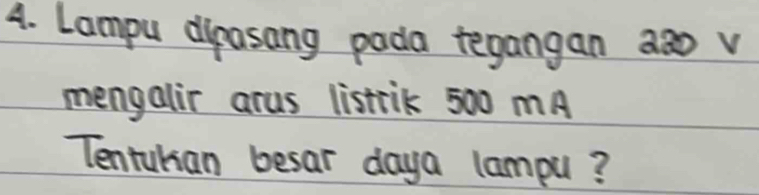 4. Lampu dipasang pada tegangan 220 V
mengalir arus listrik 500 mA
Tentukan besar daya lampu?